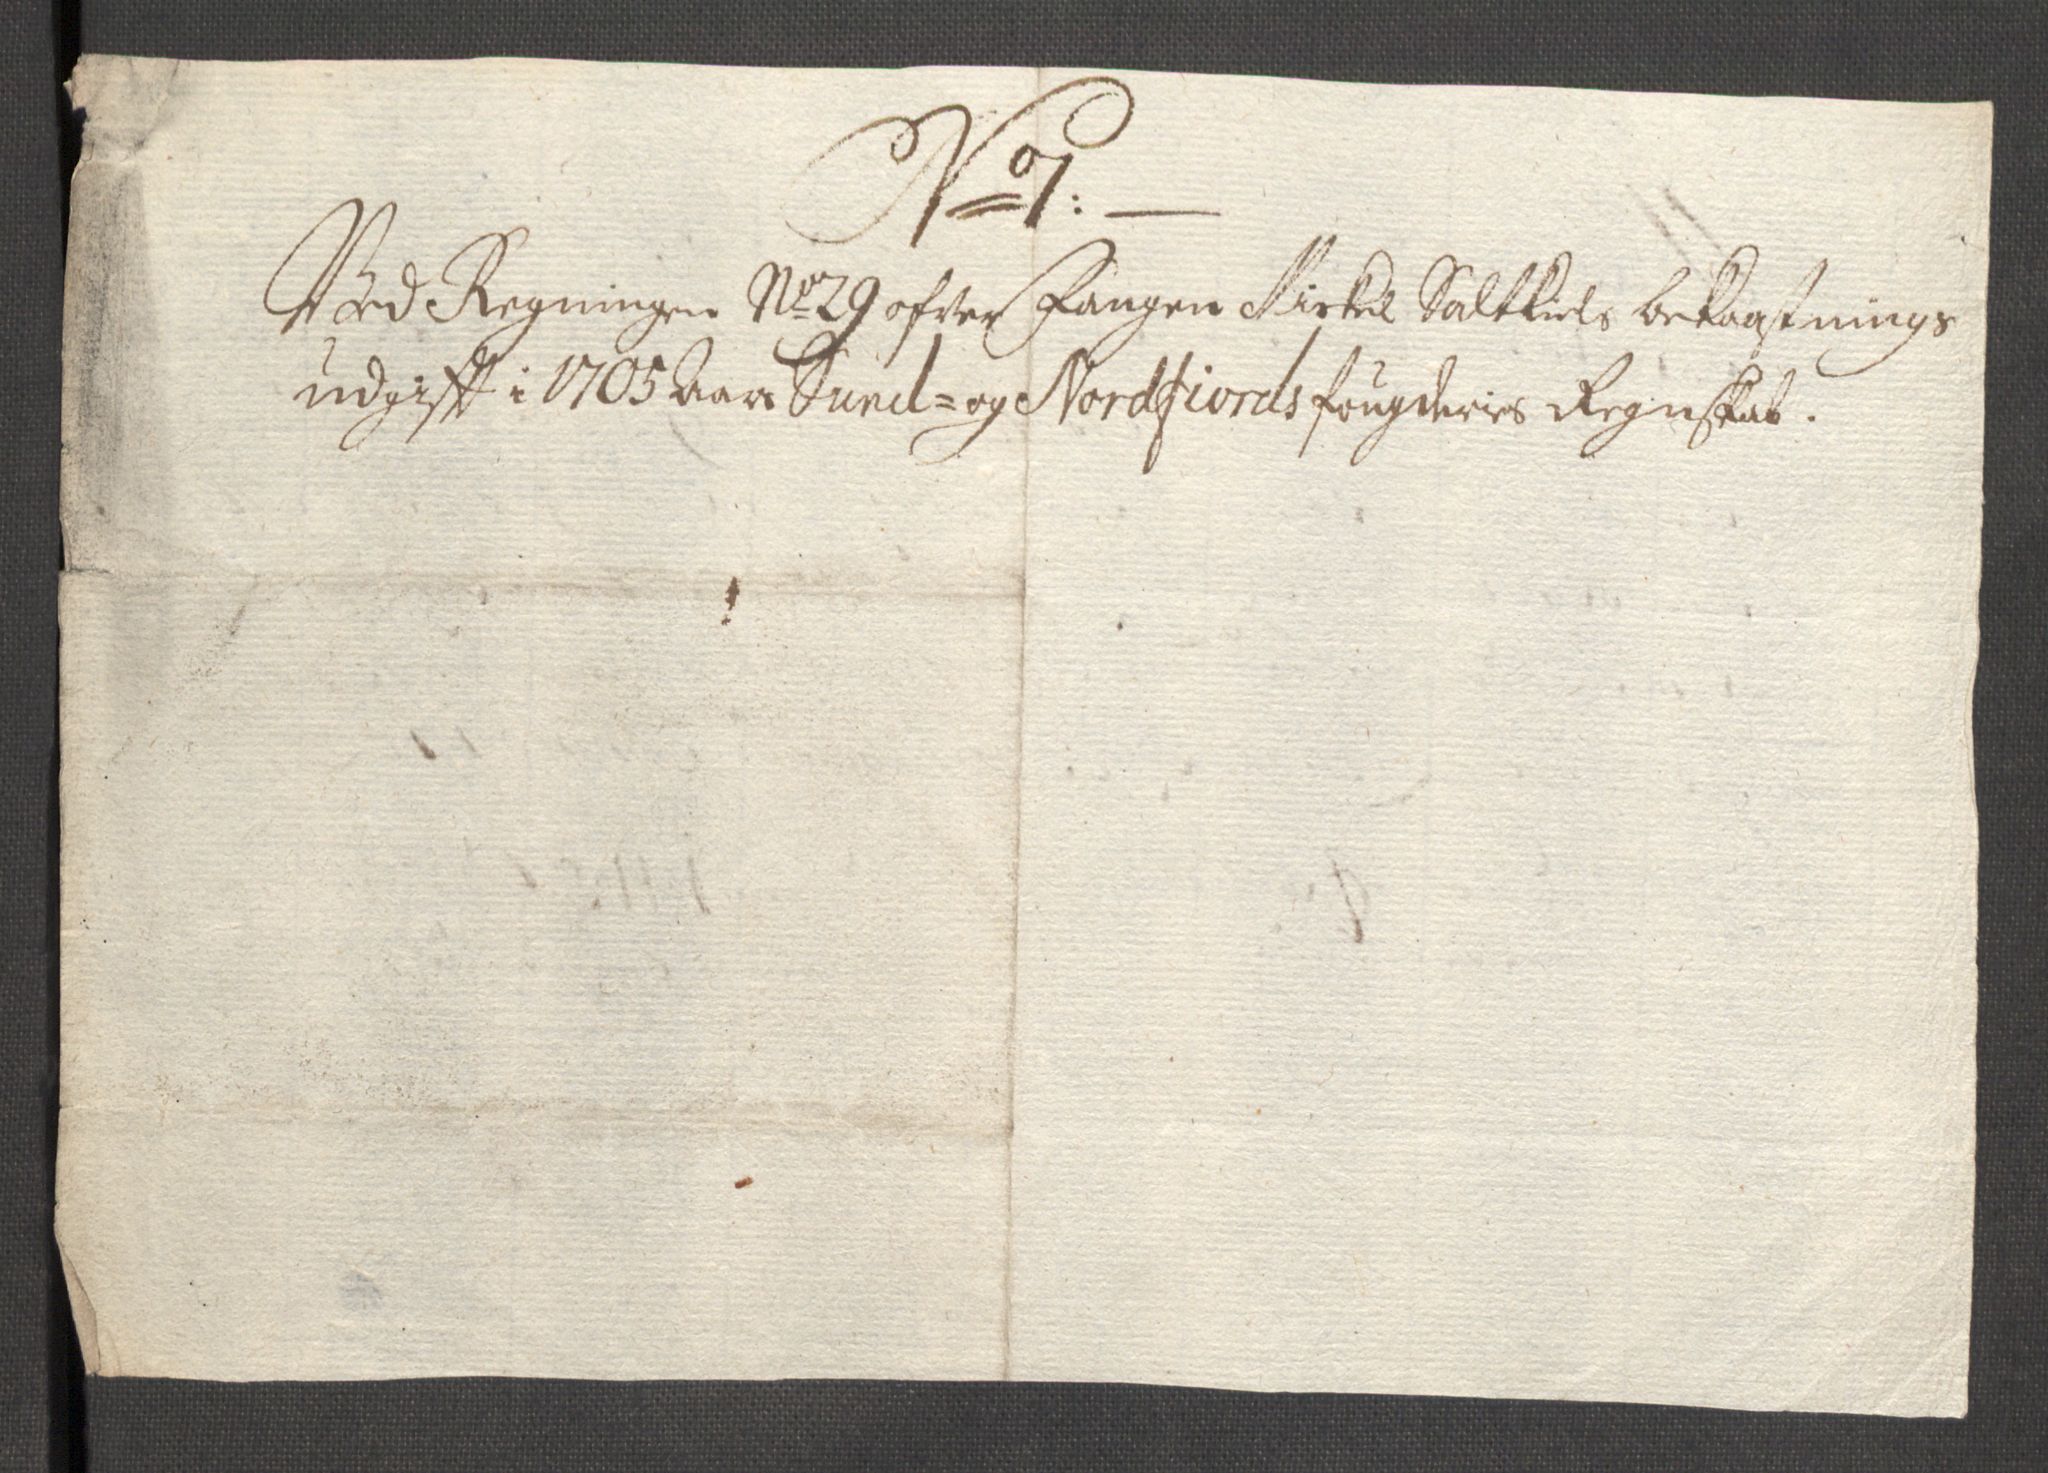 No 7:
Ved Regningen No 29 ofver Fangen Mickel Saltkiels bekaastnings
udgifft i 1705 Aars Sund= og Nordfiords fougderies Regnskab.